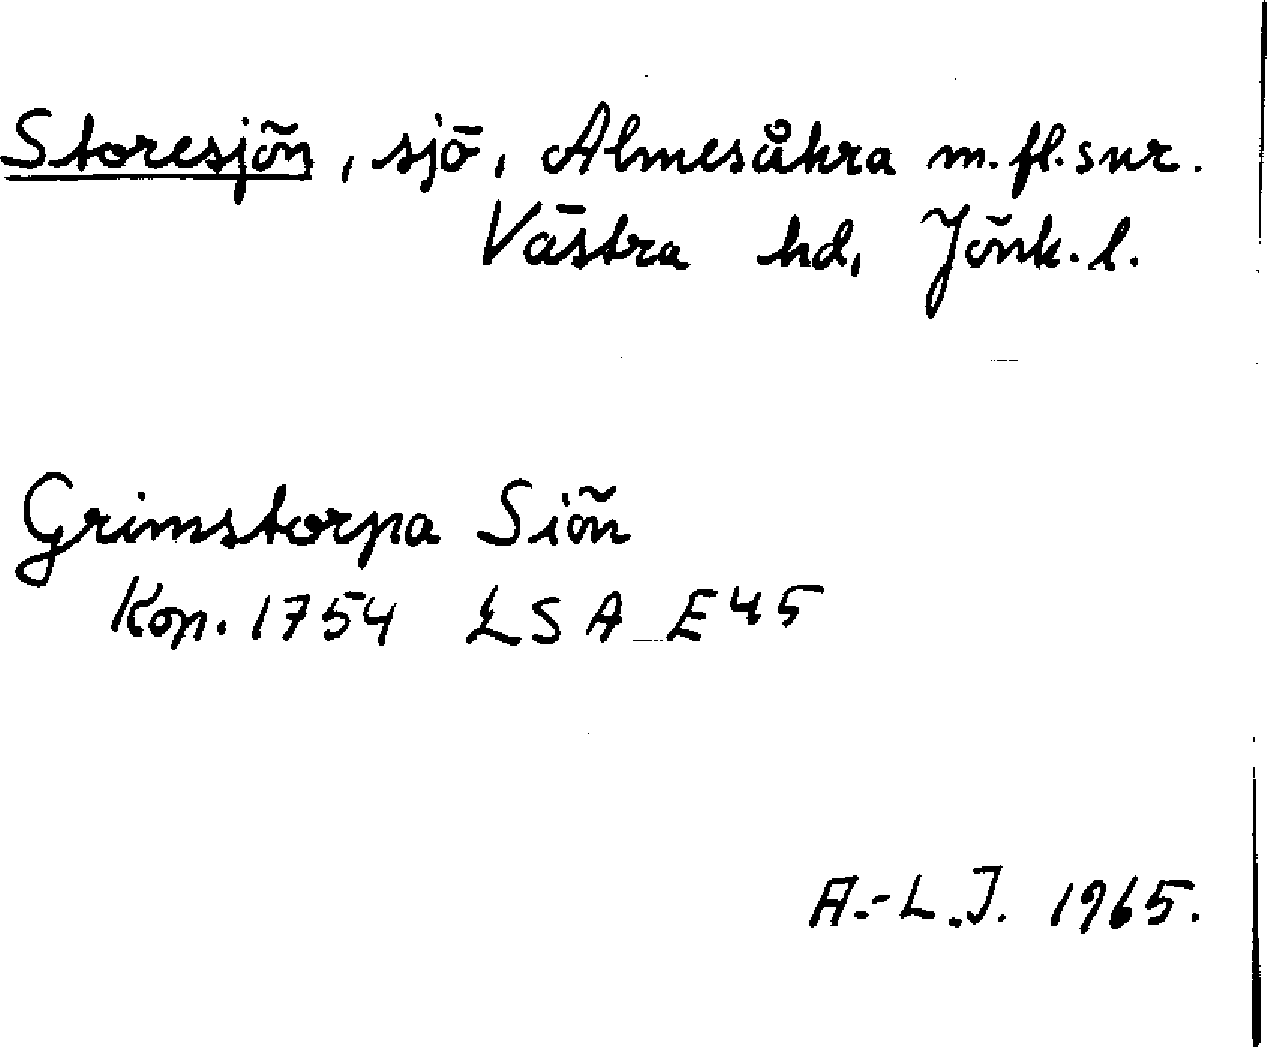 Storesjön, sjö, Almesåkra m.fl. snr.
Västra hd, Jönk. l.
Grimstorpa Siön
Kop. 1754 LSA E45
A.-L.J. 1965.